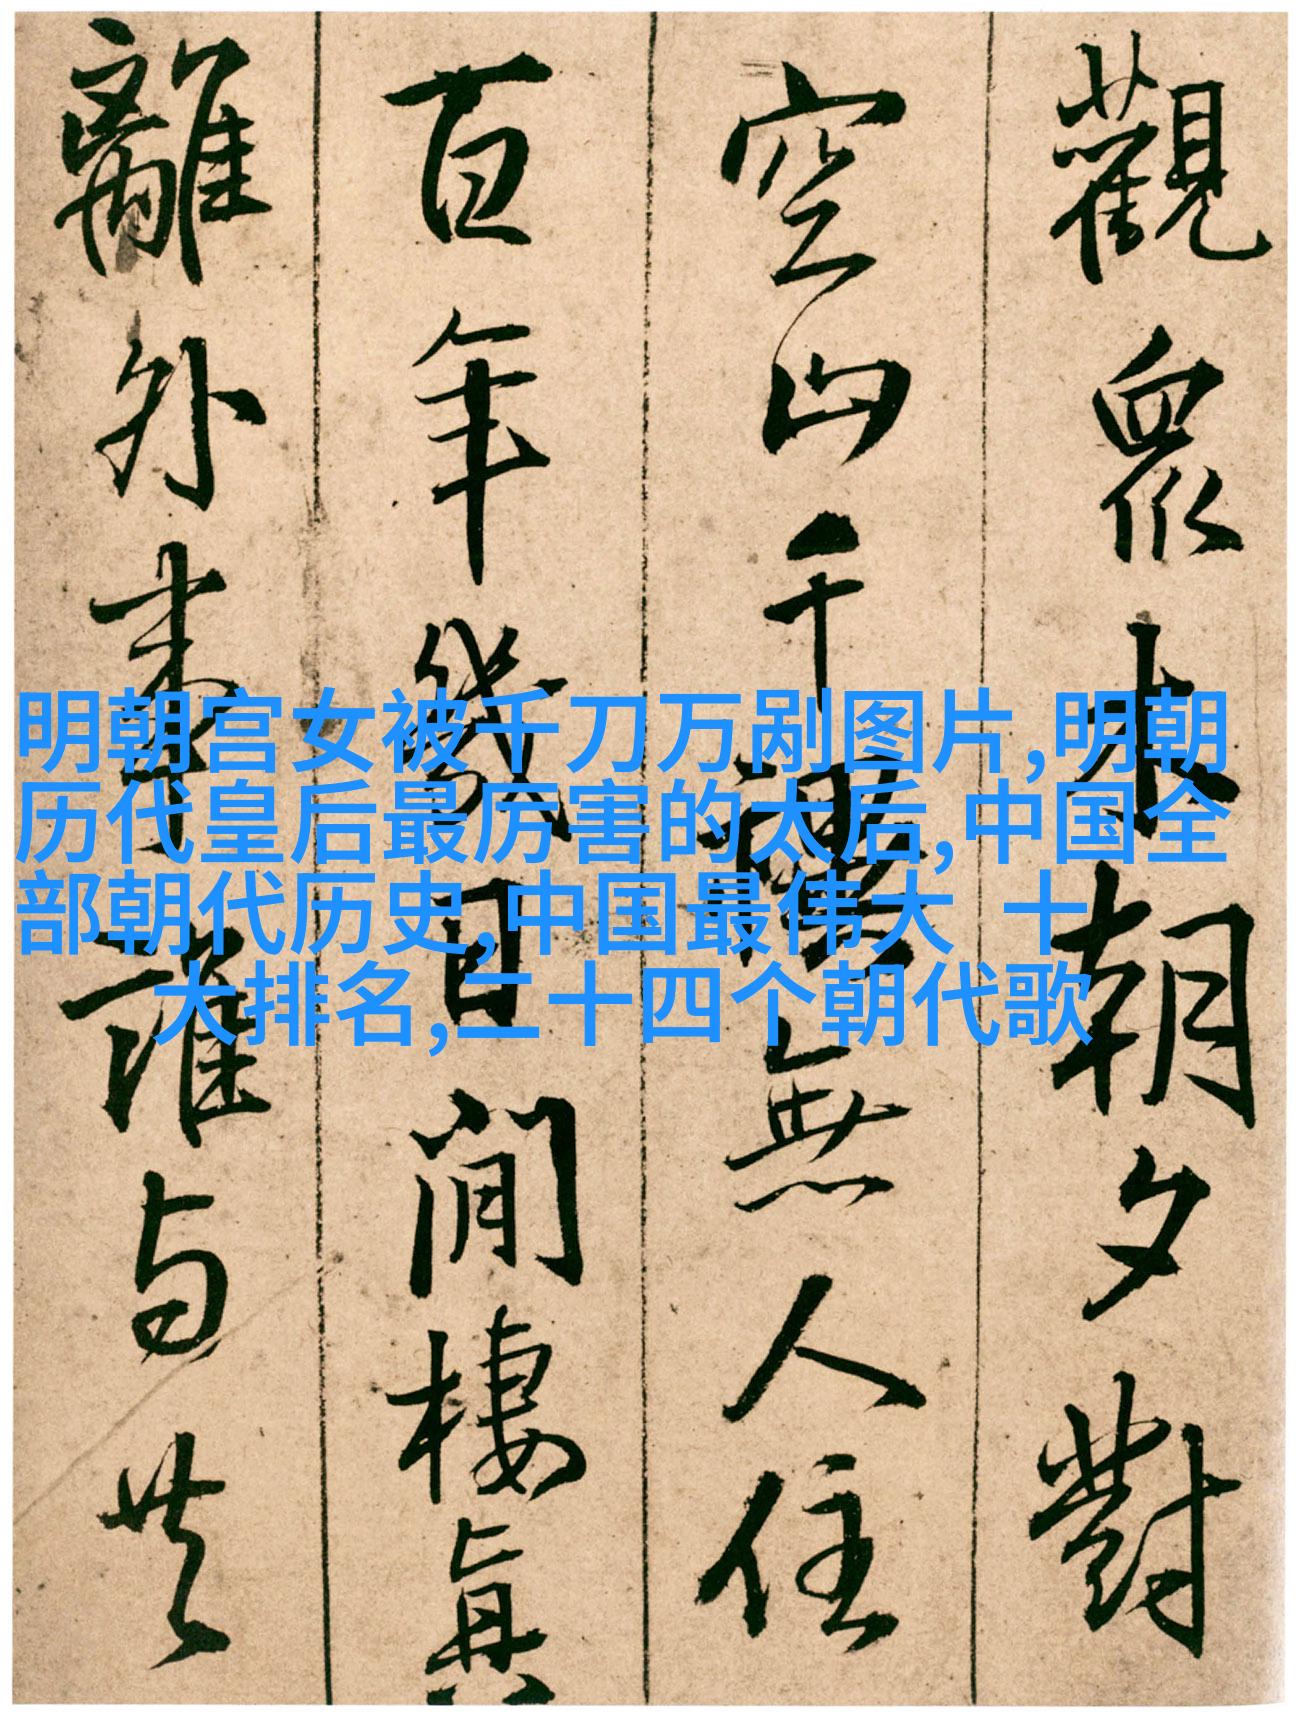 明朝宫女被千刀万剐图片,明朝
历代皇后最厉害的太后,中国全
部朝代历史,中国最伟大 十
大排名,二十四个朝代歌
觀眾木朝夕對
空山千無人住
百年幾日閒棲真
離外事誰与共